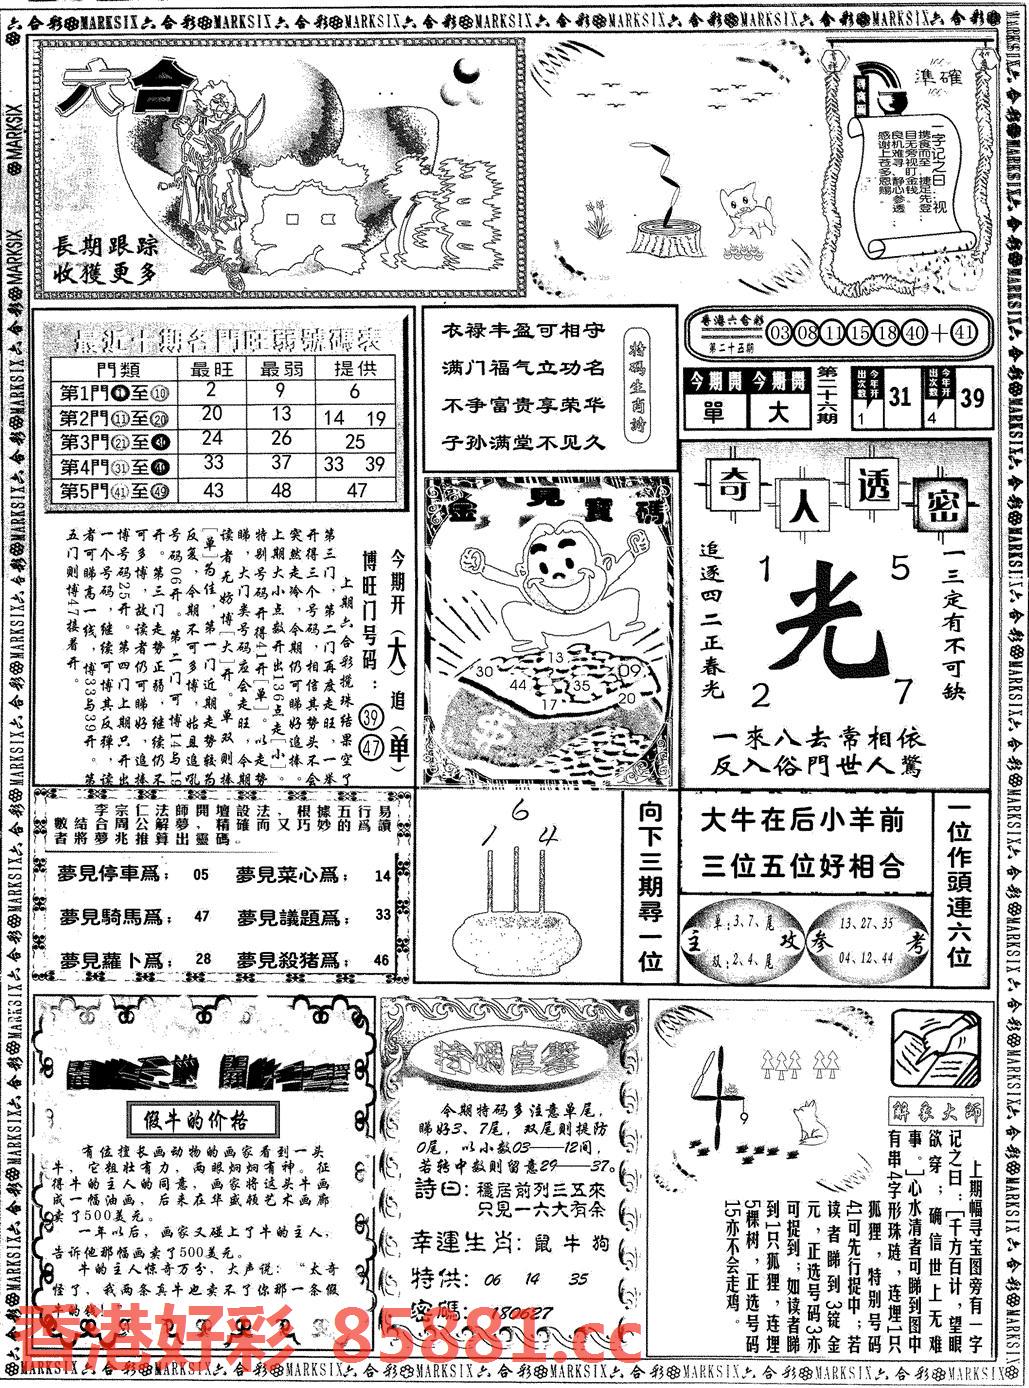 六合彩MARKSIX六合彩MARKSIX六合彩MARKSIX六合彩MARKSIX六合彩MARKSIX六合彩MARKSIX六合彩MARKSIX六合彩
六合
長期跟踪
收獲更多
準確
一字记之曰：视
携食而至，捷足先登
目无旁视盯金钱
良机难寻，静心参透
感谢上苍多恩赐。
最近十期各門旺弱號碼表
門類 最旺 最弱 提供
第1門①至⑩ 2 9 6
第2門⑪至⑳ 20 13 14 19
第3門㉑至㉚ 24 26 25
第4門㉛至㊵ 33 37 33 39
第5門㊶至㊾ 43 48 47
衣禄丰盈可相守
满门福气立功名
不争富贵享荣华
子孙满堂不见久
特码生肖詩
香港六合彩
第二十五期
03 08 11 15 18 40 + 41
今期開 今期開
單 大
第二十六期
今年开出次数 1
31
今年开出次数 4
39
今期开（大）追（单）
博旺门号码：㊴㊼
上期六合彩搅珠结果空了
第三门，第二门再度走旺，一举
开得三个号码，相信其势头不会
突然走冷，今期仍可睇好追捧。
上期大小点数开出136点走[小]。
特别号码开得41开[单]。以走势
睇，大门类号码应会走旺，今期
读者无妨博[大]开。单双则捧
[单]为佳，第一门近期走势较为
反复，今期不可多博，姑且追吼
号码06开。第二门可博14与19
开。第三门走势正弱，继续仍不
可多博，故读者仍可睇好，追捧
博号码25开。第四门上期只开出
一个号码，继续可博其反弹，读
者可睇高一线，博33与39开。第
五门则博47接着开。
金見寶碼
30 13 09
44 35
17 20
奇人透密
追逐四二正春光
1 5
光
2 7
一三定有不可缺
一來八去常相依
反入俗門世人驚
李宗仁法師開壇設法，根據五行易
數結合周公解夢，精確而又巧妙的爲讀
者將夢兆推算出靈碼。
夢見停車爲； 05 夢見菜心爲； 14
夢見騎馬爲； 47 夢見議題爲； 33
夢見蘿卜爲； 28 夢見殺猪爲； 46
6
1 4
向下三期尋一位
大牛在后小羊前
三位五位好相合
主攻
单:3、7、尾
双:2、4、尾
参考
13、27、35
04、12、44
一位作頭連六位
假牛的价格
有位擅长画动物的画家看到一头
牛，它粗壮有力，两眼炯炯有神。征
得牛的主人的同意，画家将这头牛画
成一幅油画，后来在华盛顿艺术画廊
卖了500美元。
一年以后，画家又碰上了牛的主人，
告诉他那幅画卖了500美元。
牛的主人惊奇万分，大声说：“太奇
怪了，我两条真牛也卖不了你那一条假
牛的钱！
特碼直擊
今期特码多注意单尾，
睇好3、7尾，双尾则提防
0尾，以小数03——12间，
若转中数则留意29——37。
詩曰：穩居前列三五來
只見一六大有余
幸運生肖：鼠 牛 狗
特供： 06 14 35
密碼： 180627
9
解彖大師
上期幅寻宝图旁有一字
记之曰：[千方百计，望眼
欲穿；确信世上无难
事。]心水清者可睇到图中
有串4字形珠琏，连埋1只
狐狸，特别号码
41可先行捉中；若
读者睇到3锭金
元，正选号码3亦
可捉到；如读者睇
到1只狐狸，连埋
5棵树，正选号码
15亦不会走鸡。
香港好彩 85881.cc
MARKSIX六合彩MARKSIX六合彩MARKSIX六合彩MARKSIX六合彩MARKSIX六合彩MARKSIX六合彩MARKSIX六合彩